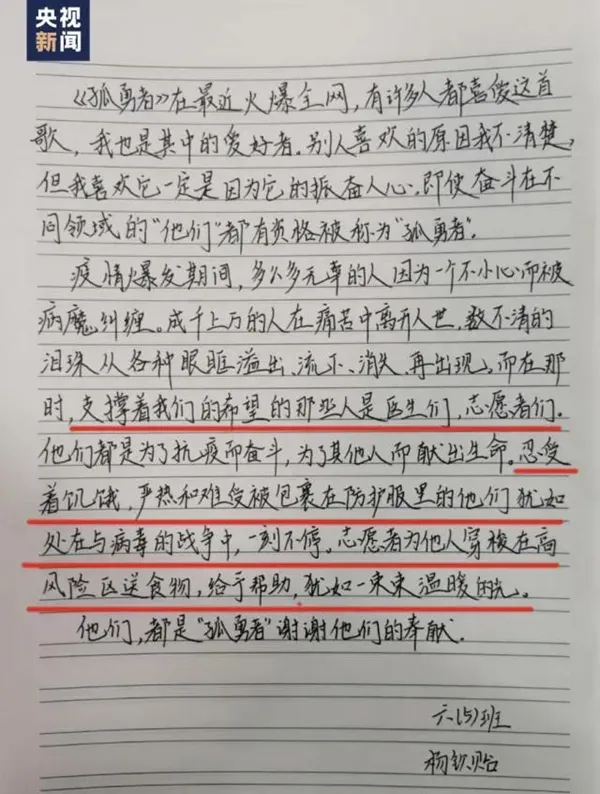 央视
新闻
《孤勇者》在最近火爆全网,有许多人都喜爱这首
歌,我也是其中的爱好者。别人喜欢的原因我不清楚,
但我喜欢它一定是因为它的振奋人心。即使奋斗在不
同领域的"他们"都有资格被称为"孤勇者"。
疫情爆发期间,多么多无辜的人因为一个不小心而被
病魔纠缠。成千上万的人在痛苦中离开人世,数不清的
泪珠从各种眼眶溢出、流下、消失、再出现。而在那
时,支撑着我们的希望的那些人是医生们,志愿者们。
他们都是为了抗疫而奋斗,为了其他人而献出生命。忍受
着饥饿,严热和难受被包裹在防护服里的他们犹如
处在与病毒的战争中,一刻不停。志愿者为他人穿梭在高
风险区送食物,给予帮助,犹如一束束温暖的光。
他们,都是"孤勇者"谢谢他们的奉献.
六(5)班
杨钦贻